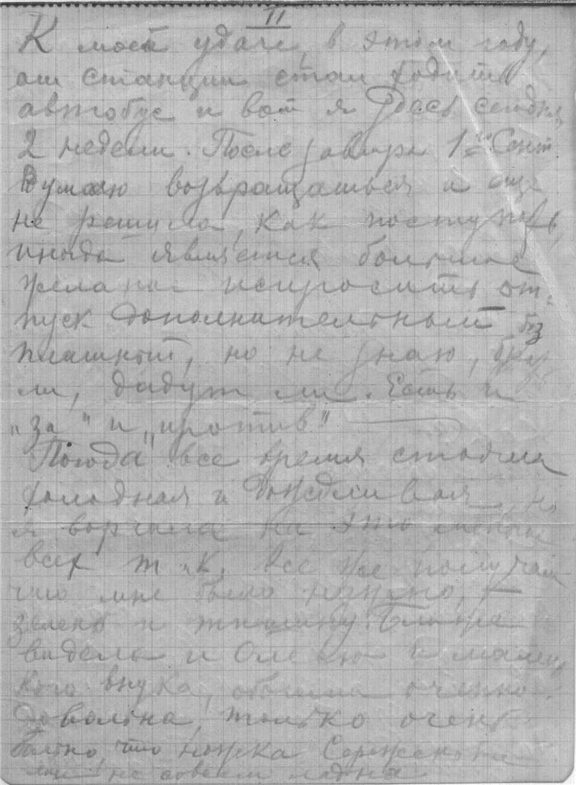 II
К моей удаче, в этом году,
от станции стал ходить
автобус и вот я здесь сегодня
2 недели. После завтра 1го Сент
думаю возвращаться и еще
не решила, как поступить,
иногда является большое
желание испросить от-
пуск дополнительный без
платный, но не знаю,
ли, дадут ли. Есть и
"за" и "против"
Погода все время стояла
холодная и дождливая
я ворчала на это меньше
всех т.к. все же получаю
что мне было нужно, –
зелень и тишину.
видела и и малень
кого внука, очень
довольна, только очень
больно, что ножка
не совсем ладна